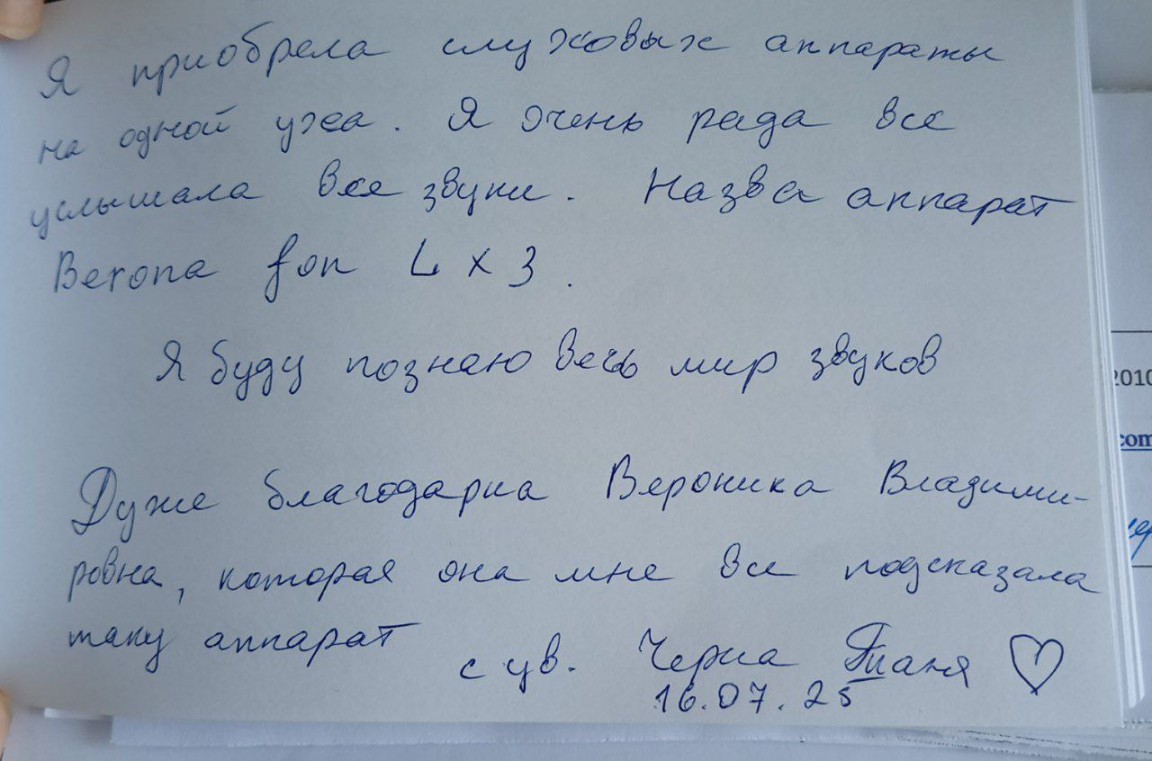 Я приобрела слуховых аппараты
на одной уха. Я очень рада все
услышала все звуки. Назва аппарат
Beropa fon L x 3.
Я буду познаю весь мир звуков
Дуже благодарна Вероника Владими-
ровна, которая она мне все подсказала
таку аппарат
с ув. Черна Таня ♡
16.07.25
2010
com